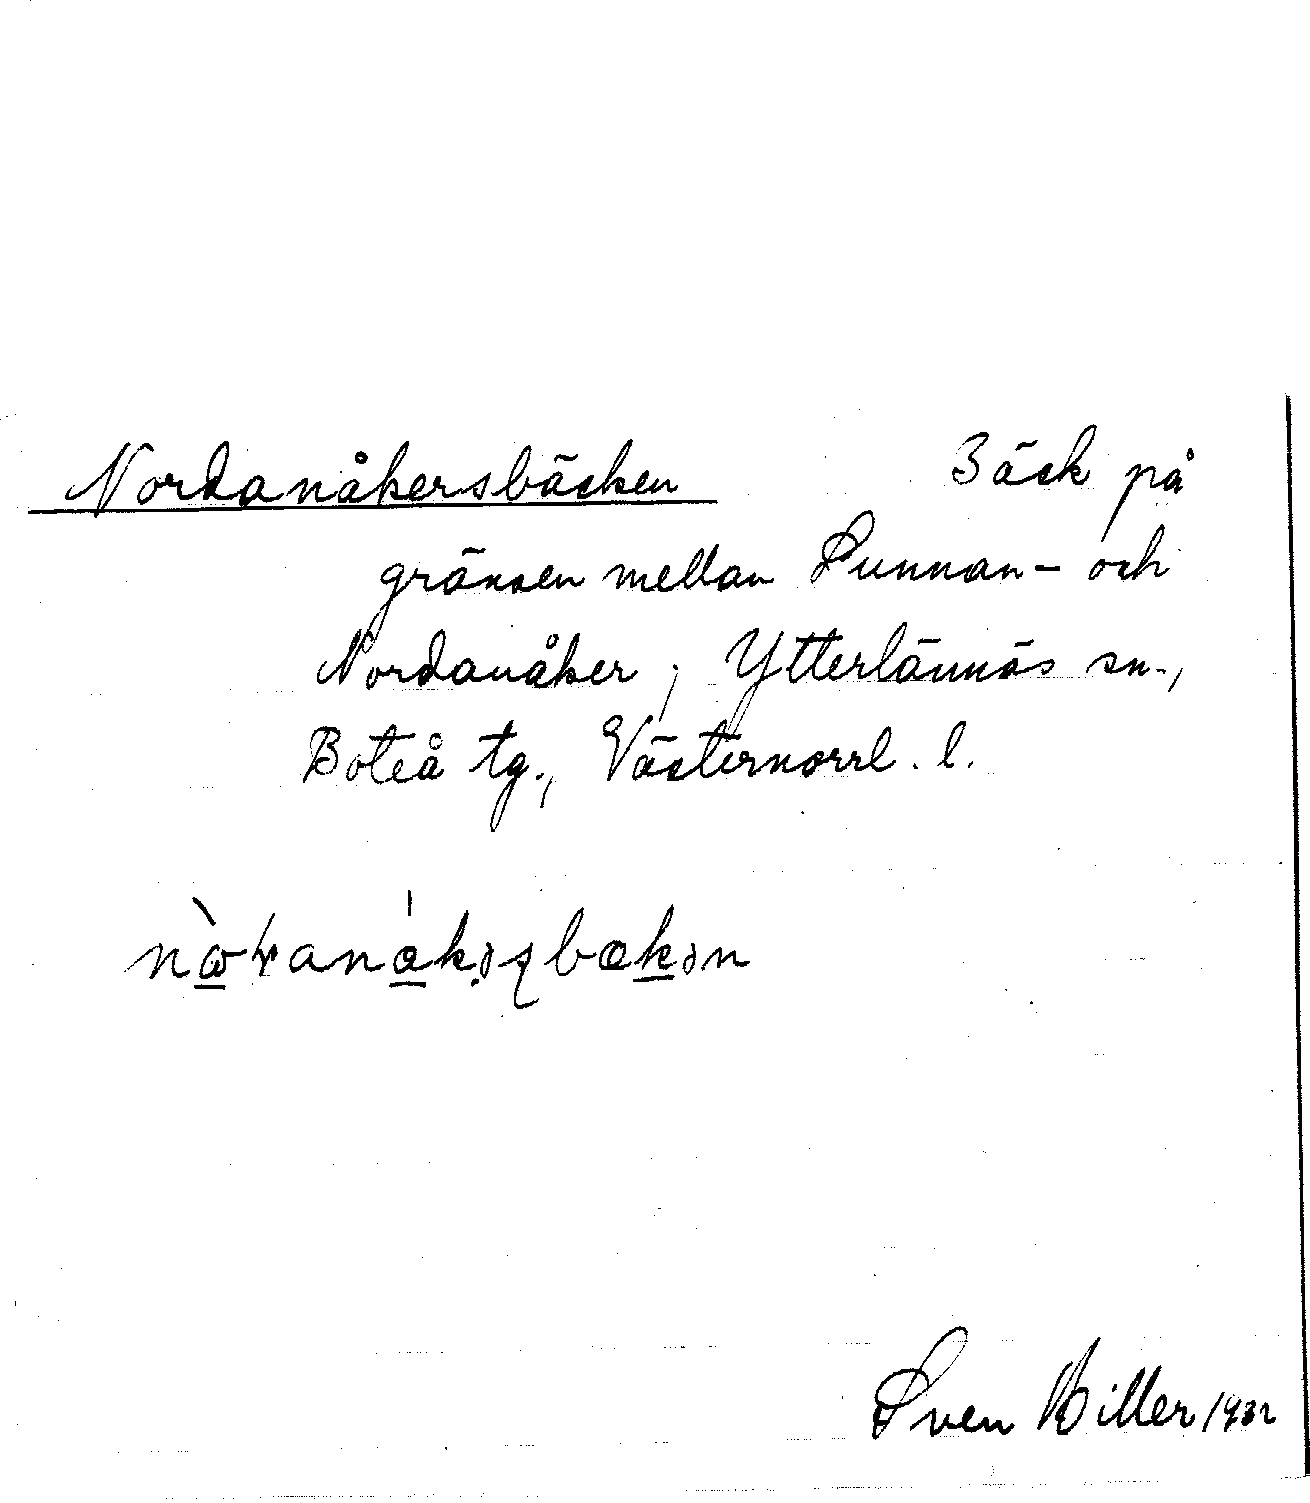 Nordanåkersbäcken Bäck på
gränsen mellan Sunnan- och
Nordanåker, Ytterlännäs sn.,
Boteå tg., Västernorrl. l.
Sven 1932